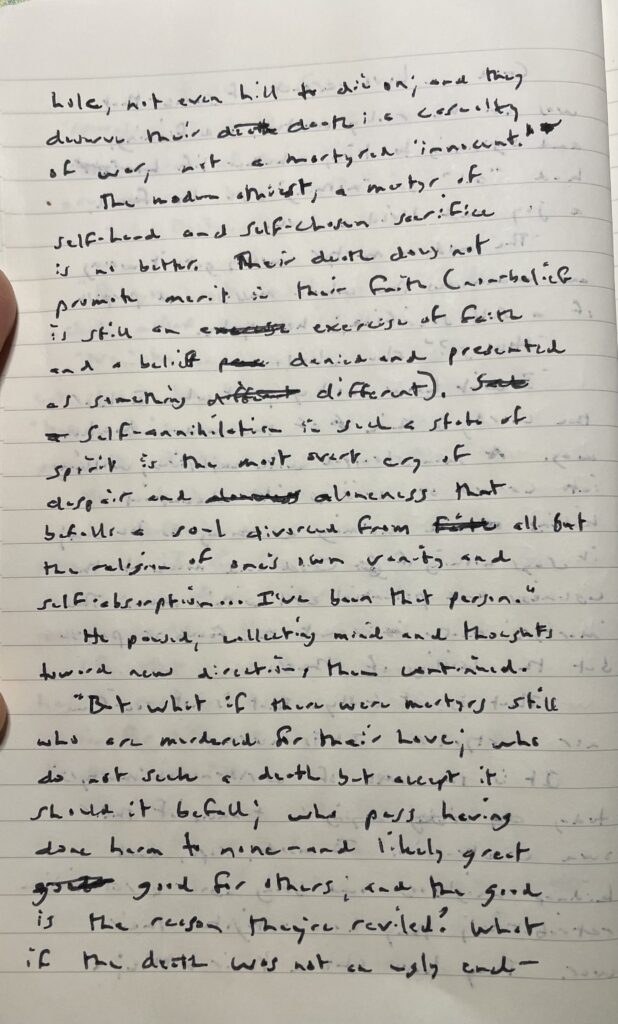 hole, not even hill to die on; and they
deserve their death death: a casualty
of war, not a martyred 'innocent.'"
The modern atheist, a martyr of
self-hand and self-chosen sacrifice
is no better. Their death does not
promote merit in their faith (non-belief
is still an exercise exercise of faith
and a belief denied and presented
as something different different).
self-annihilation in such a state of
spirit is the most overt cry of
despair and aloneness that
befalls a soul divorced from faith all but
the religion of one's own vanity and
self-absorption... I've been that person."
He paused, collecting mind and thoughts
toward new directions, then continued.
"But what if there were martyrs still
who are murdered for their love; who
do not seek a death but accept it
should it befall; who pass having
done harm to none—and likely great
good good for others; and the good
is the reason they're reviled? What
if the death was not an ugly end—